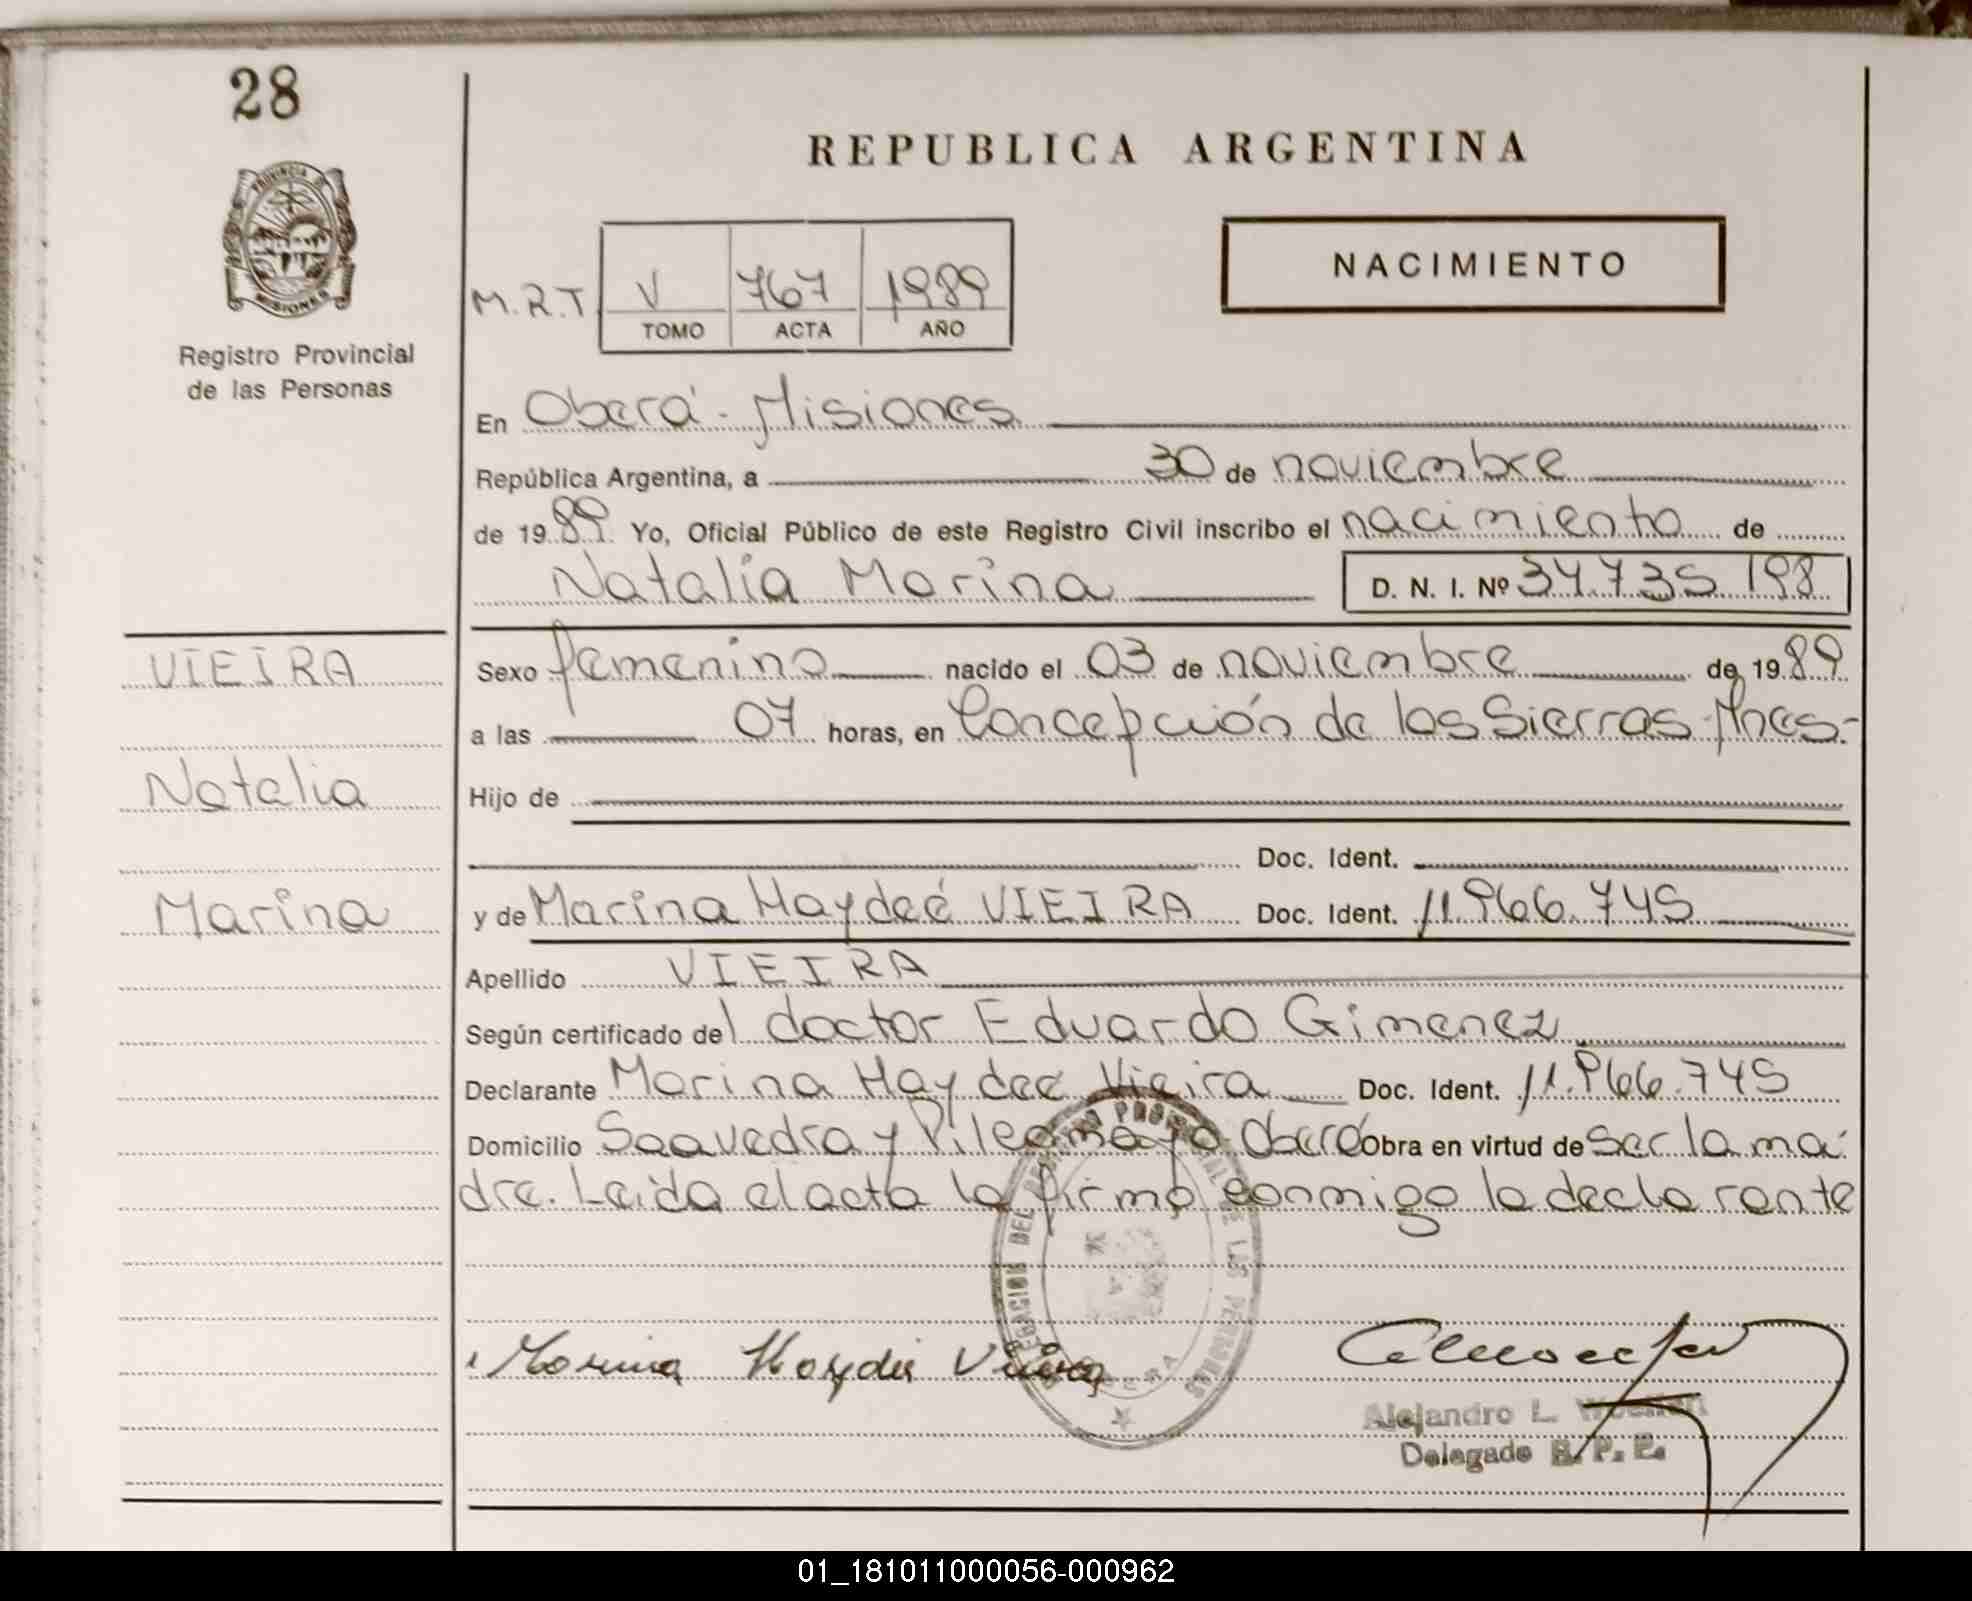 28
REPUBLICA ARGENTINA
PROVINCIA DE
MISIONES
Registro Provincial
de las Personas
NACIMIENTO
M.R.T. V 767 1989
TOMO ACTA AÑO
En Oberá - Misiones
República Argentina, a 30 de noviembre
de 1989. Yo, Oficial Público de este Registro Civil inscribo el nacimiento de
Natalia Marina D. N. I. Nº 34.735.198
VIEIRA
Natalia
Marina
Sexo femenino nacido el 03 de noviembre de 1989
a las 07 horas, en Concepción de las Sierras-Mnes.-
Hijo de
Doc. Ident.
y de Marina Haydeé VIEIRA Doc. Ident. 11.966.745
Apellido VIEIRA
Según certificado del doctor Eduardo Gimenez
Declarante Marina Haydeé Vieira Doc. Ident. 11.966.745
Domicilio Saavedra y Pilcomayo Oberá Obra en virtud de ser la ma
dre. Leida el acta la firma conmigo la declarante
DELEGACION DEL REGISTRO PROVINCIAL DE LAS PERSONAS
OBERA
Marina Haydeé Vieira
Alejandro L.
Delegado R. P. P.
01_181011000056-000962